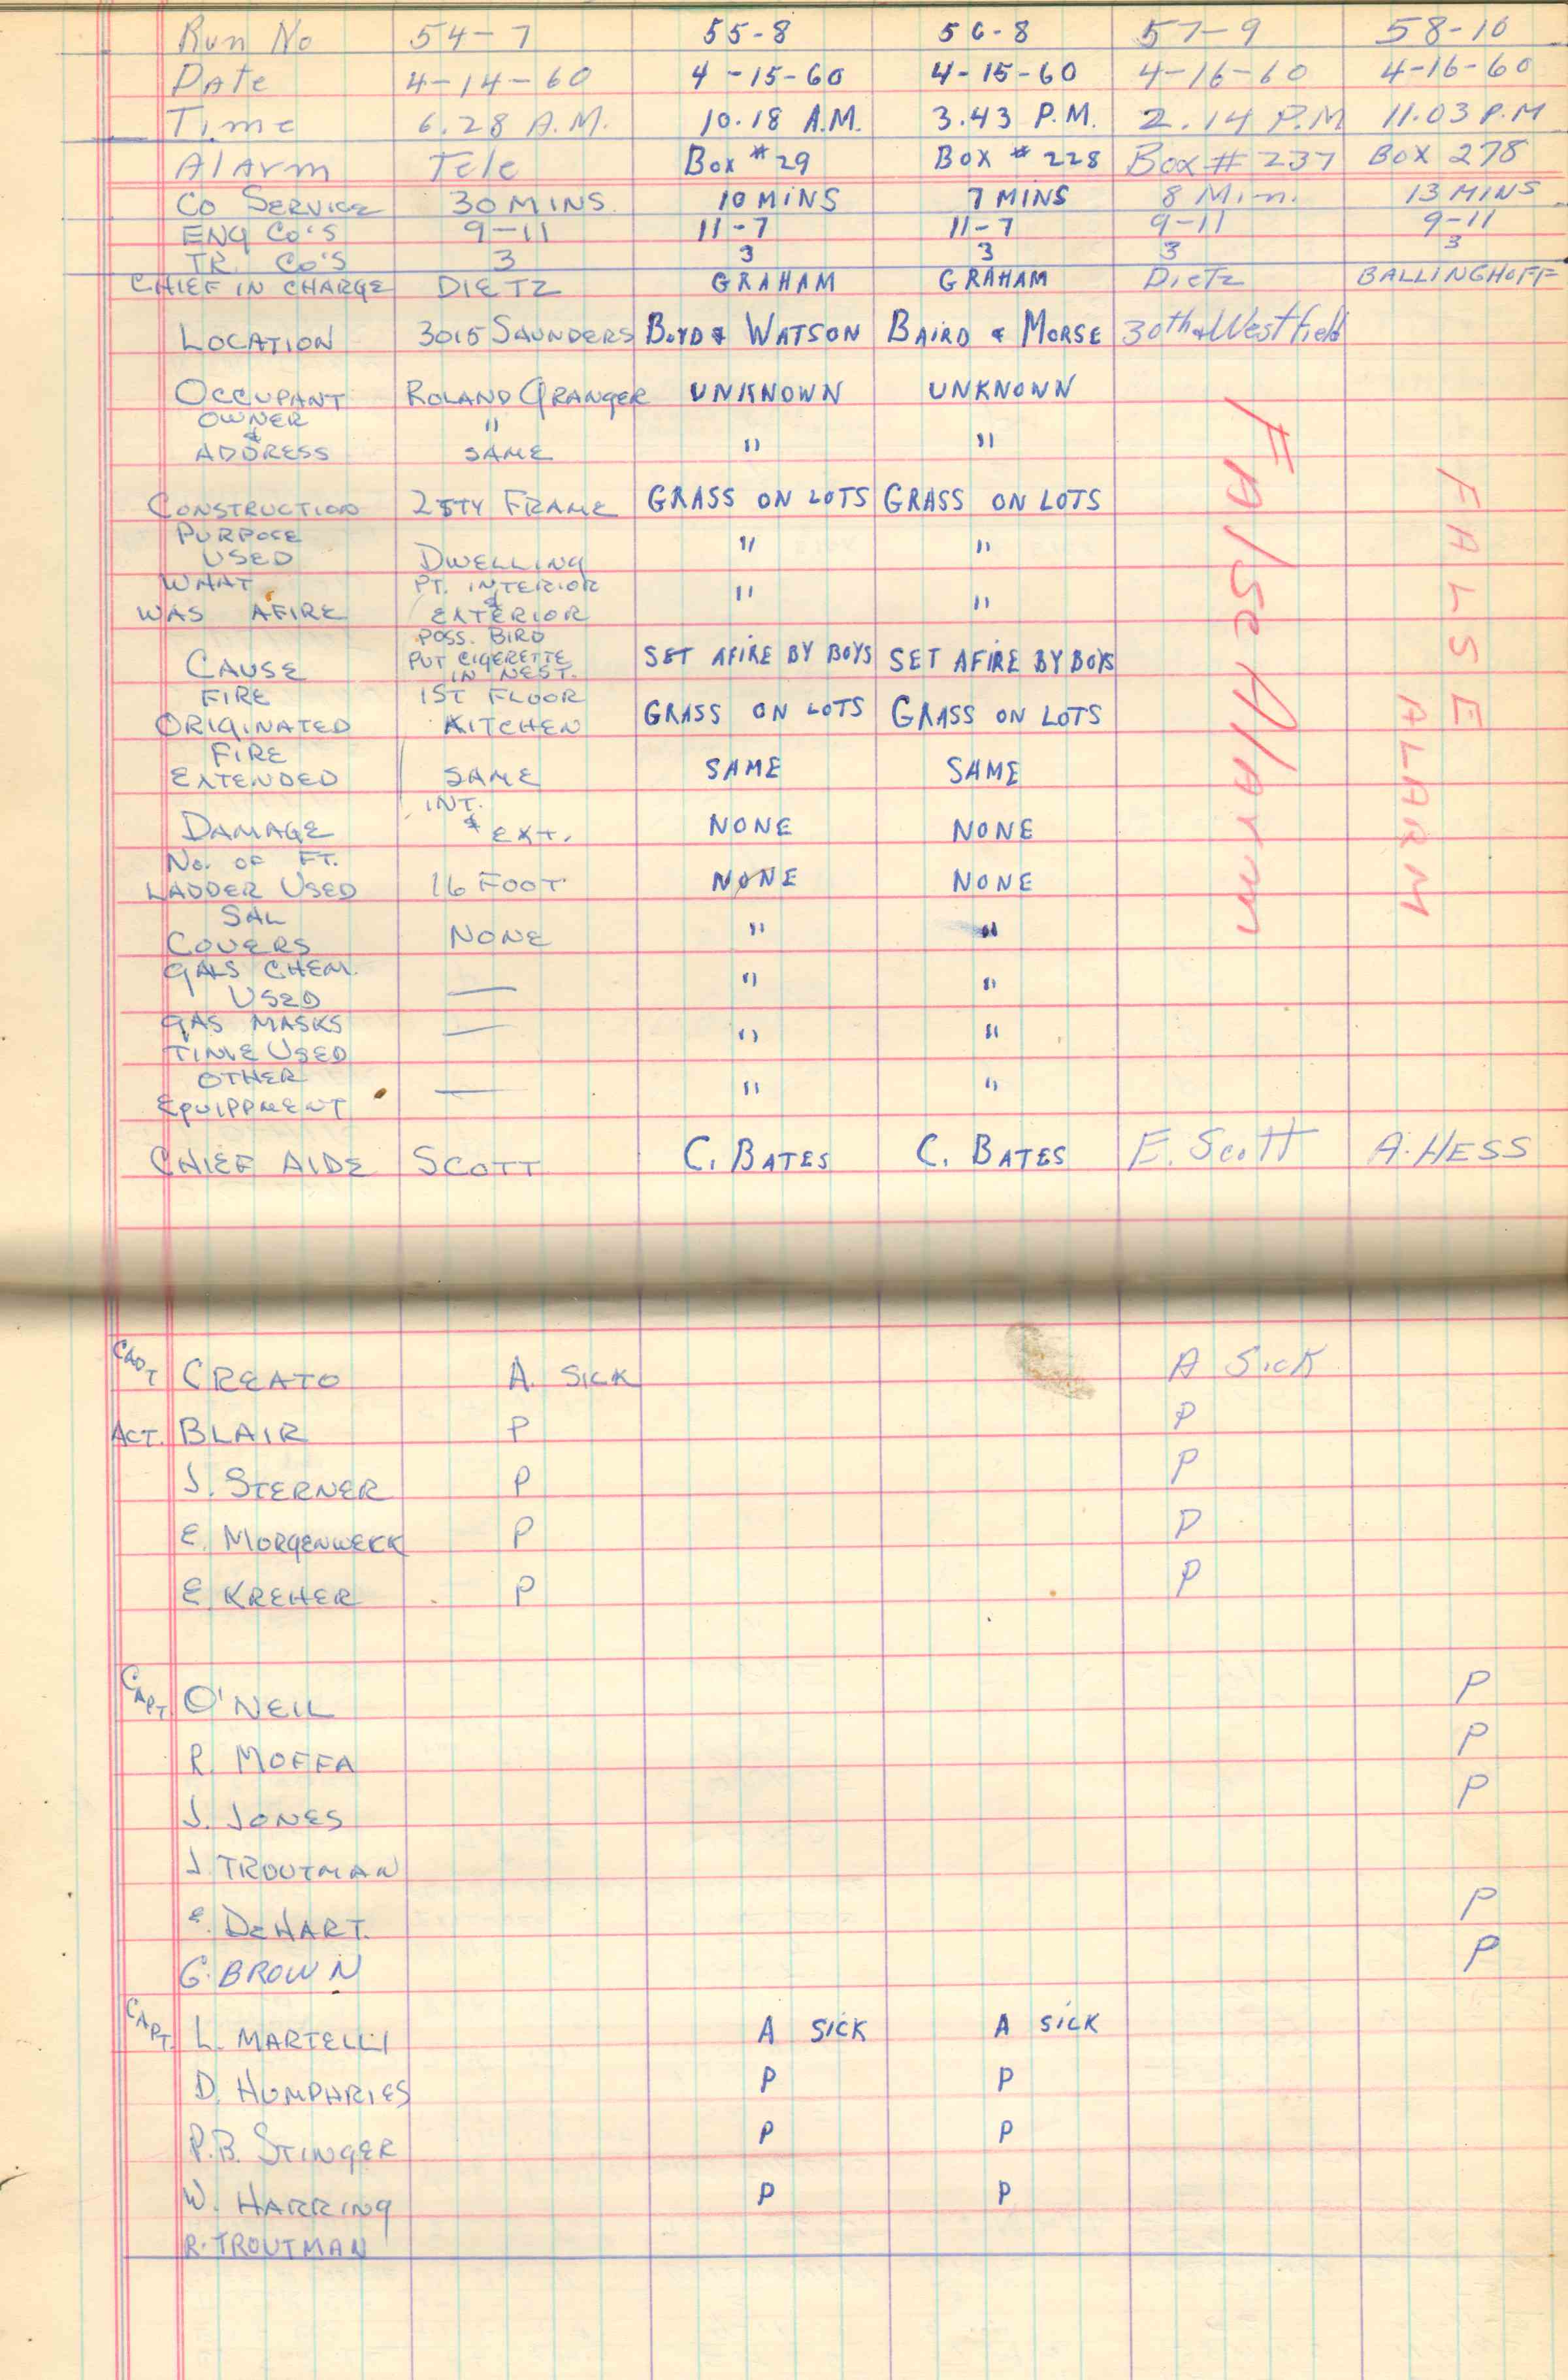 Run No 54-7 55-8 56-8 57-9 58-10
Date 4-14-60 4-15-60 4-15-60 4-16-60 4-16-60
Time 6.28 A.M. 10.18 A.M. 3.43 P.M. 2.14 P.M 11.03 P.M
Alarm Tele Box #29 Box # 228 Box # 237 Box 278
Co Service 30 MINS. 10 MINS 7 MINS 8 Min. 13 MINS
ENG Co'S 9-11 11-7 11-7 9-11 9-11
TR. Co'S 3 3 3 3 3
CHIEF IN CHARGE DIETZ GRAHAM GRAHAM Dietz BALLINGHOFF
LOCATION 3015 SAUNDERS BOYD & WATSON BAIRD & MORSE 30th & Westfield
OCCUPANT ROLAND GRANGER UNKNOWN UNKNOWN
OWNER "
&
ADDRESS SAME " "
CONSTRUCTION 2 STY FRAME GRASS ON LOTS GRASS ON LOTS
PURPOSE
USED DWELLING " "
WHAT PT. INTERIOR
&
WAS AFIRE EXTERIOR " "
POSS. BIRD
CAUSE PUT CIGERETTE SET AFIRE BY BOYS SET AFIRE BY BOYS
IN NEST.
FIRE 1ST FLOOR
ORIGINATED KITCHEN GRASS ON LOTS GRASS ON LOTS
FIRE
EXTENDED SAME SAME SAME
INT.
DAMAGE & EXT. NONE NONE
No. OF FT.
LADDER USED 16 FOOT NONE NONE
SAL
COVERS NONE " "
GALS CHEM.
USED — " "
GAS MASKS — " "
TIME USED
OTHER
EQUIPPMENT — " "
False Alarm
FALSE
ALARM
CHIEF AIDE SCOTT C. BATES C. BATES E. Scott A. HESS
CAPT CREATO A. SICK A SICK
ACT. BLAIR P P
J. STERNER P P
E. MORGENWECK P P
E. KREHER P P
CAPT O'NEIL P
R. MOFFA P
J. JONES P
J. TROUTMAN
E. DEHART. P
G. BROWN P
CAPT. L. MARTELLI A SICK A SICK
D. HUMPHRIES P P
P.B. STINGER P P
W. HARRING P P
R. TROUTMAN